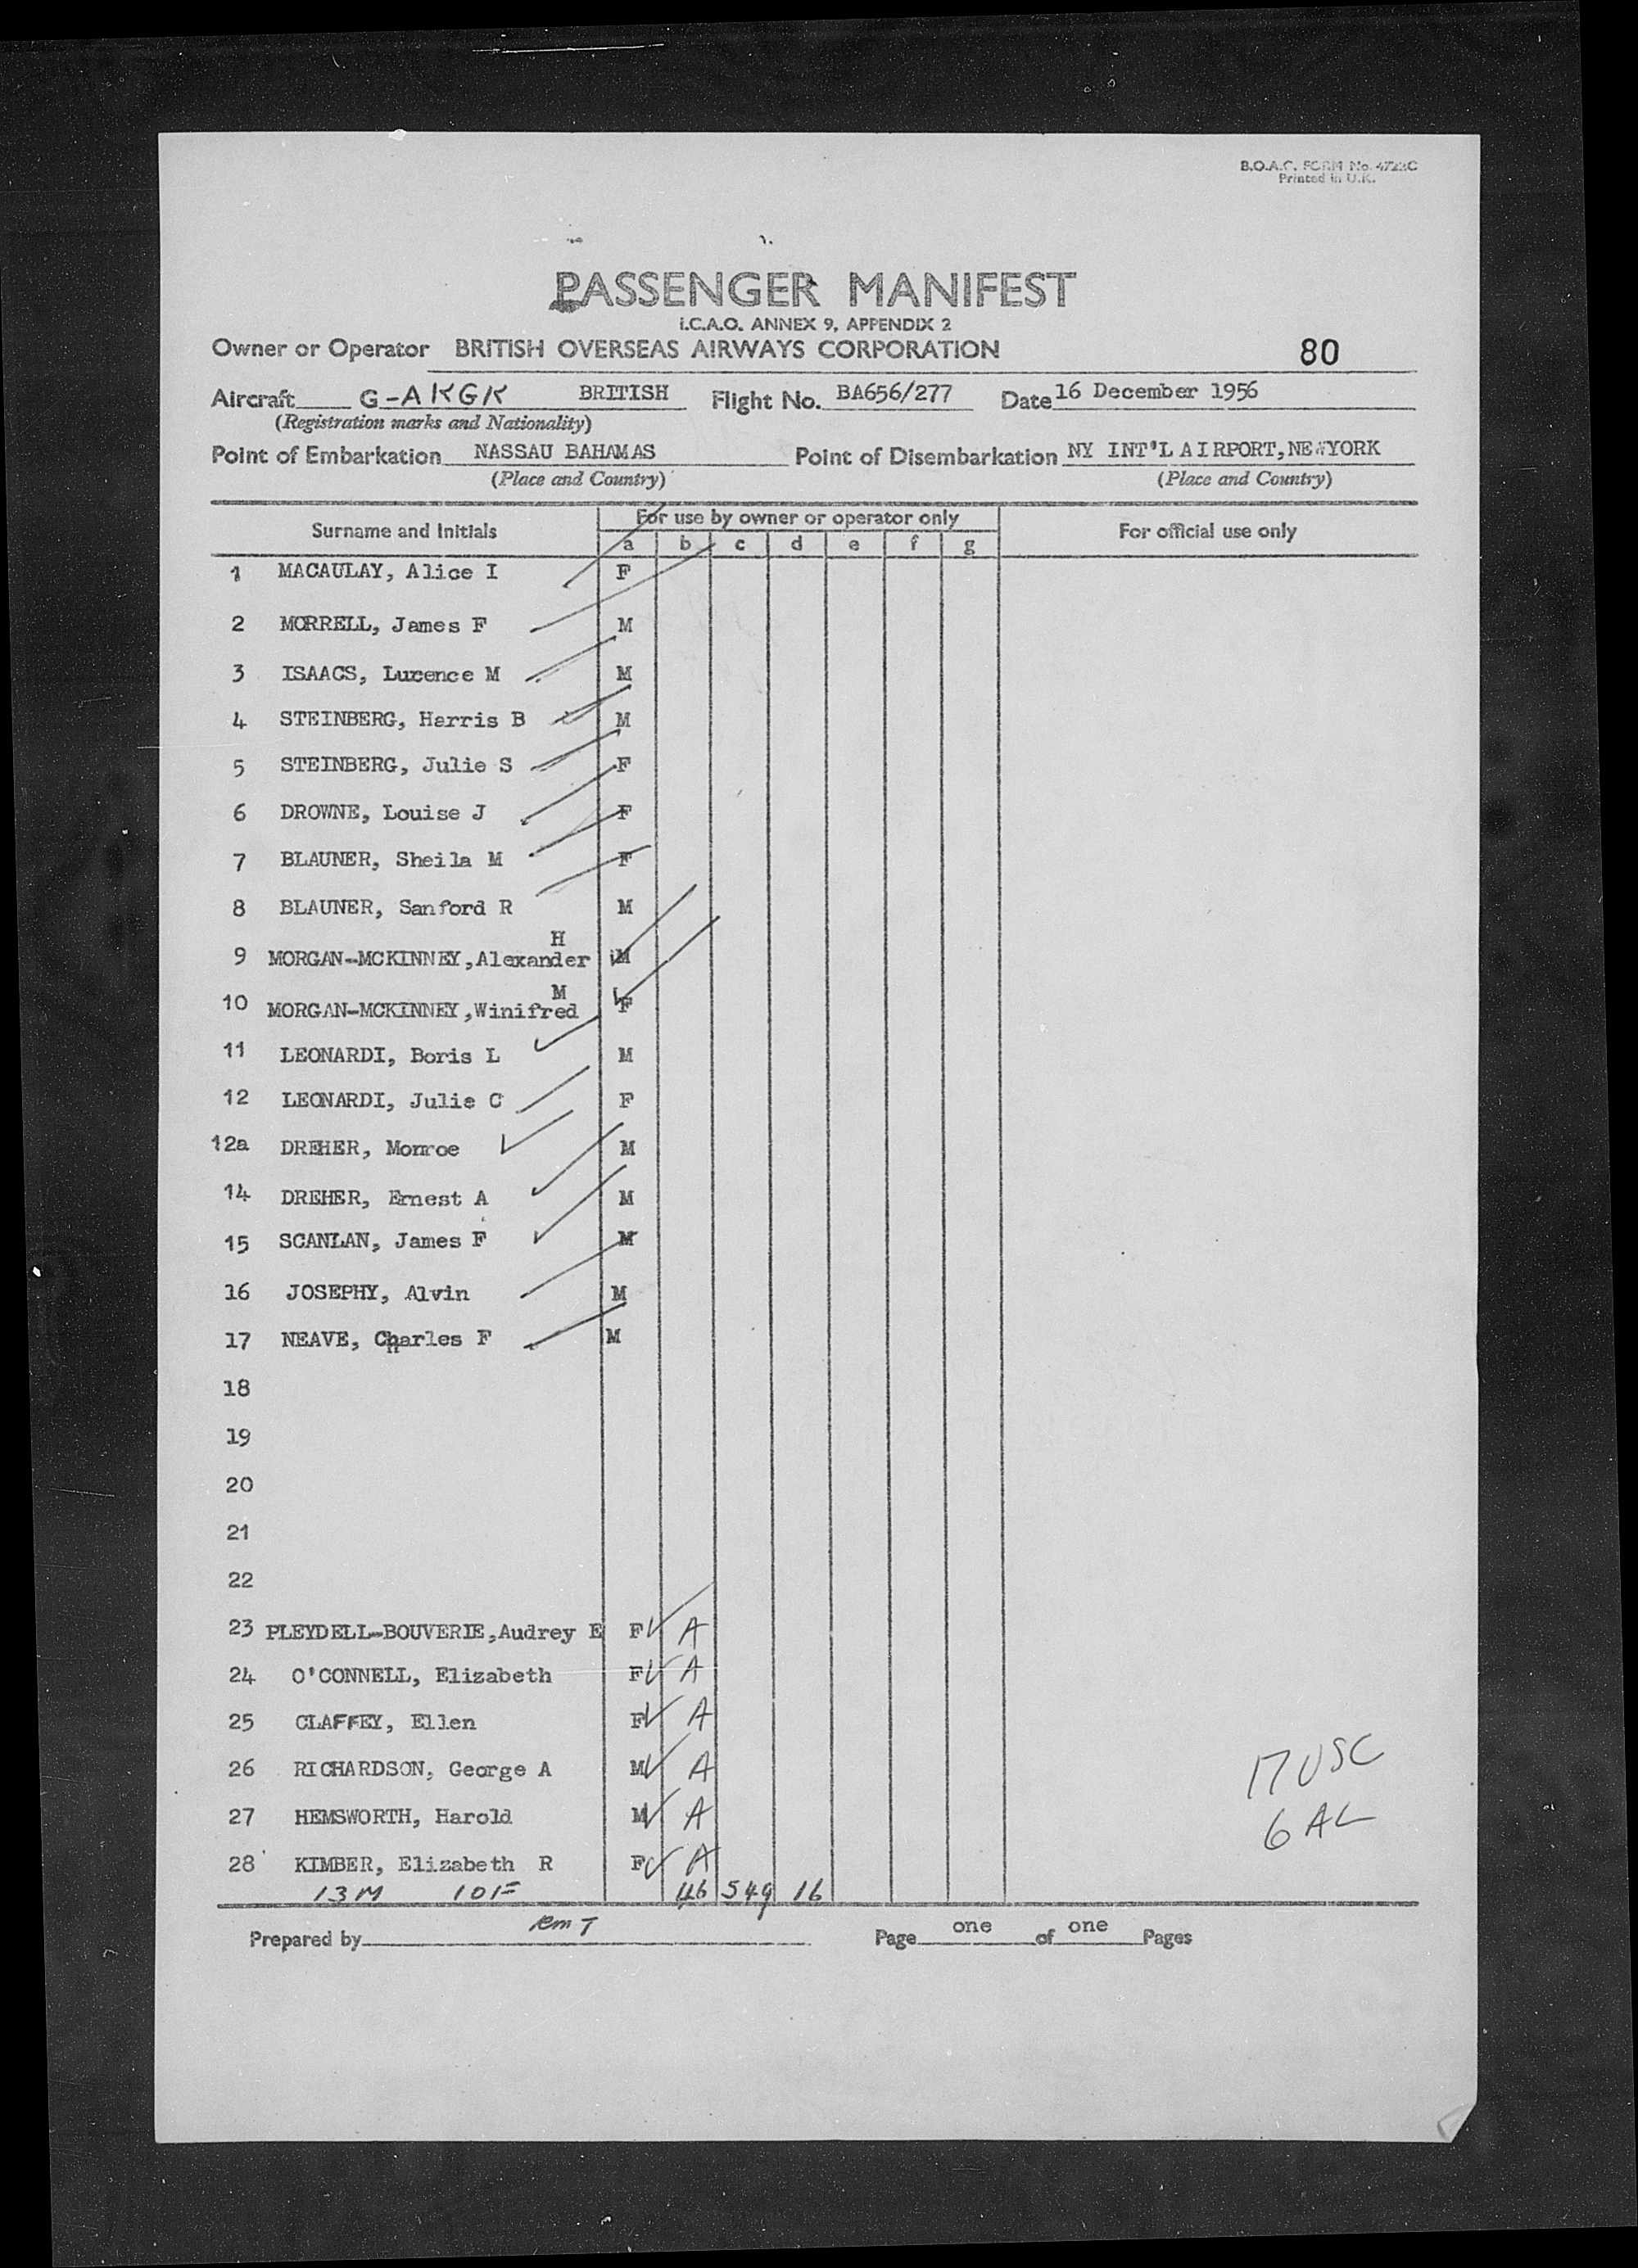 B.O.A.C. FORM No. 4722C
Printed in U.K.
PASSENGER MANIFEST
I.C.A.O. ANNEX 9, APPENDIX 2
Owner or Operator BRITISH OVERSEAS AIRWAYS CORPORATION 80
Aircraft G-AKGK BRITISH Flight No. BA656/277 Date 16 December 1956
(Registration marks and Nationality)
Point of Embarkation NASSAU BAHAMAS Point of Disembarkation NY INT'L AIRPORT,NEWYORK
(Place and Country) (Place and Country)
Surname and Initials For use by owner or operator only For official use only
a b c d e f g
1 MACAULAY, Alice I F
2 MORRELL, James F M
3 ISAACS, Lurence M M
4 STEINBERG, Harris B M
5 STEINBERG, Julie S F
6 DROWNE, Louise J F
7 BLAUNER, Sheila M F
8 BLAUNER, Sanford R M
H
9 MORGAN-MCKINNEY,Alexander M
M
10 MORGAN-MCKINNEY,Winifred F
11 LEONARDI, Boris L M
12 LEONARDI, Julie C F
12a DREHER, Monroe M
14 DREHER, Ernest A M
15 SCANLAN, James F M
16 JOSEPHY, Alvin M
17 NEAVE, Charles F M
18
19
20
21
22
23 PLEYDELL-BOUVERIE,Audrey E F A
24 O'CONNELL, Elizabeth F A
25 CLAFFEY, Ellen F A
26 RICHARDSON, George A M A
17 USC
27 HEMSWORTH, Harold M A
6 AL
28 KIMBER, Elizabeth R F A
13M 10F 46 549 16
Prepared by RMT Page one of one Pages